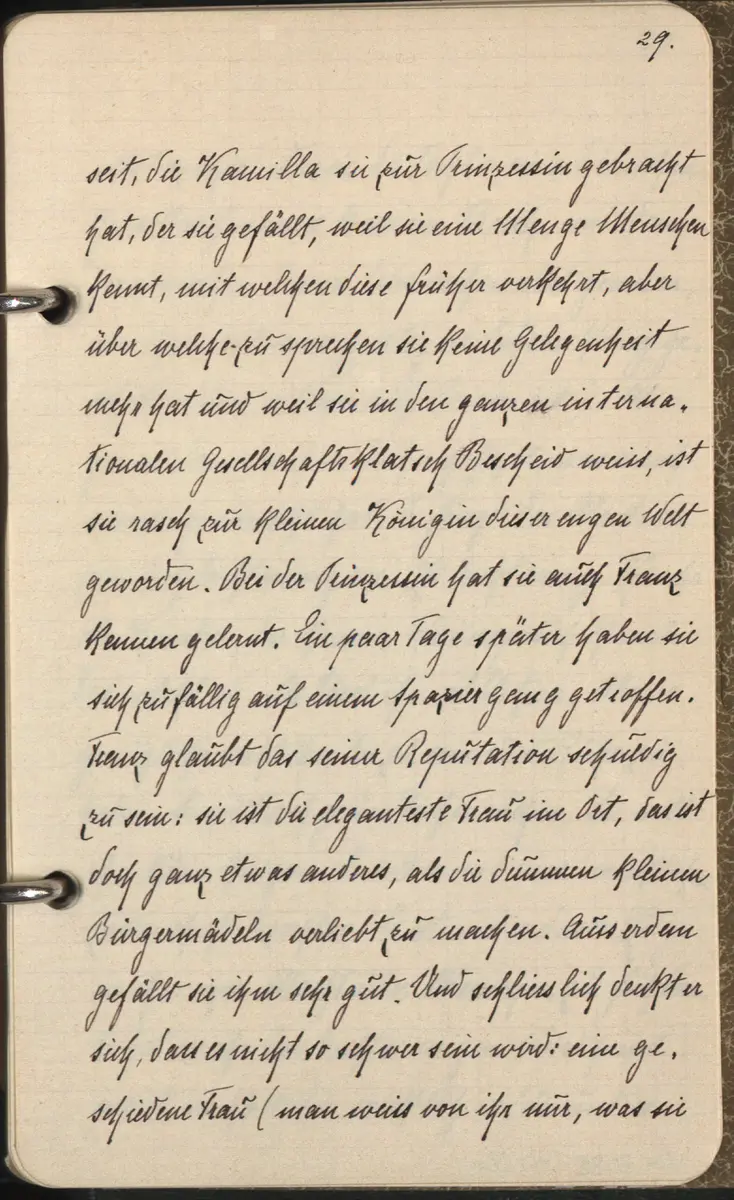 29.
seit, die Kamilla sie zur Prinzessin gebracht
hat, der sie gefällt, weil sie eine Menge Menschen
kennt, mit welchen diese früher verkehrt, aber
über welche zu sprechen sie keine Gelegenheit
mehr hat und weil sie in den ganzen interna-
tionalen Gesellschaftsklatsch Bescheid weiss, ist
sie rasch zur kleinen Königin dieser engen Welt
geworden. Bei der Prinzessin hat sie auch Franz
kennen gelernt. Ein paar Tage später haben sie
sich zufällig auf einem Spaziergang getroffen.
Franz glaubt das seiner Reputation schuldig
zu sein: sie ist die eleganteste Frau im Ort, das ist
doch ganz etwas anderes, als die dummen kleinen
Bürgermädeln verliebt zu machen. Ausserdem
gefällt sie ihm sehr gut. Und schliesslich denkt er
sich, dass es nicht so schwer sein wird: eine ge-
schiedene Frau (man weiss von ihr nur, was sie